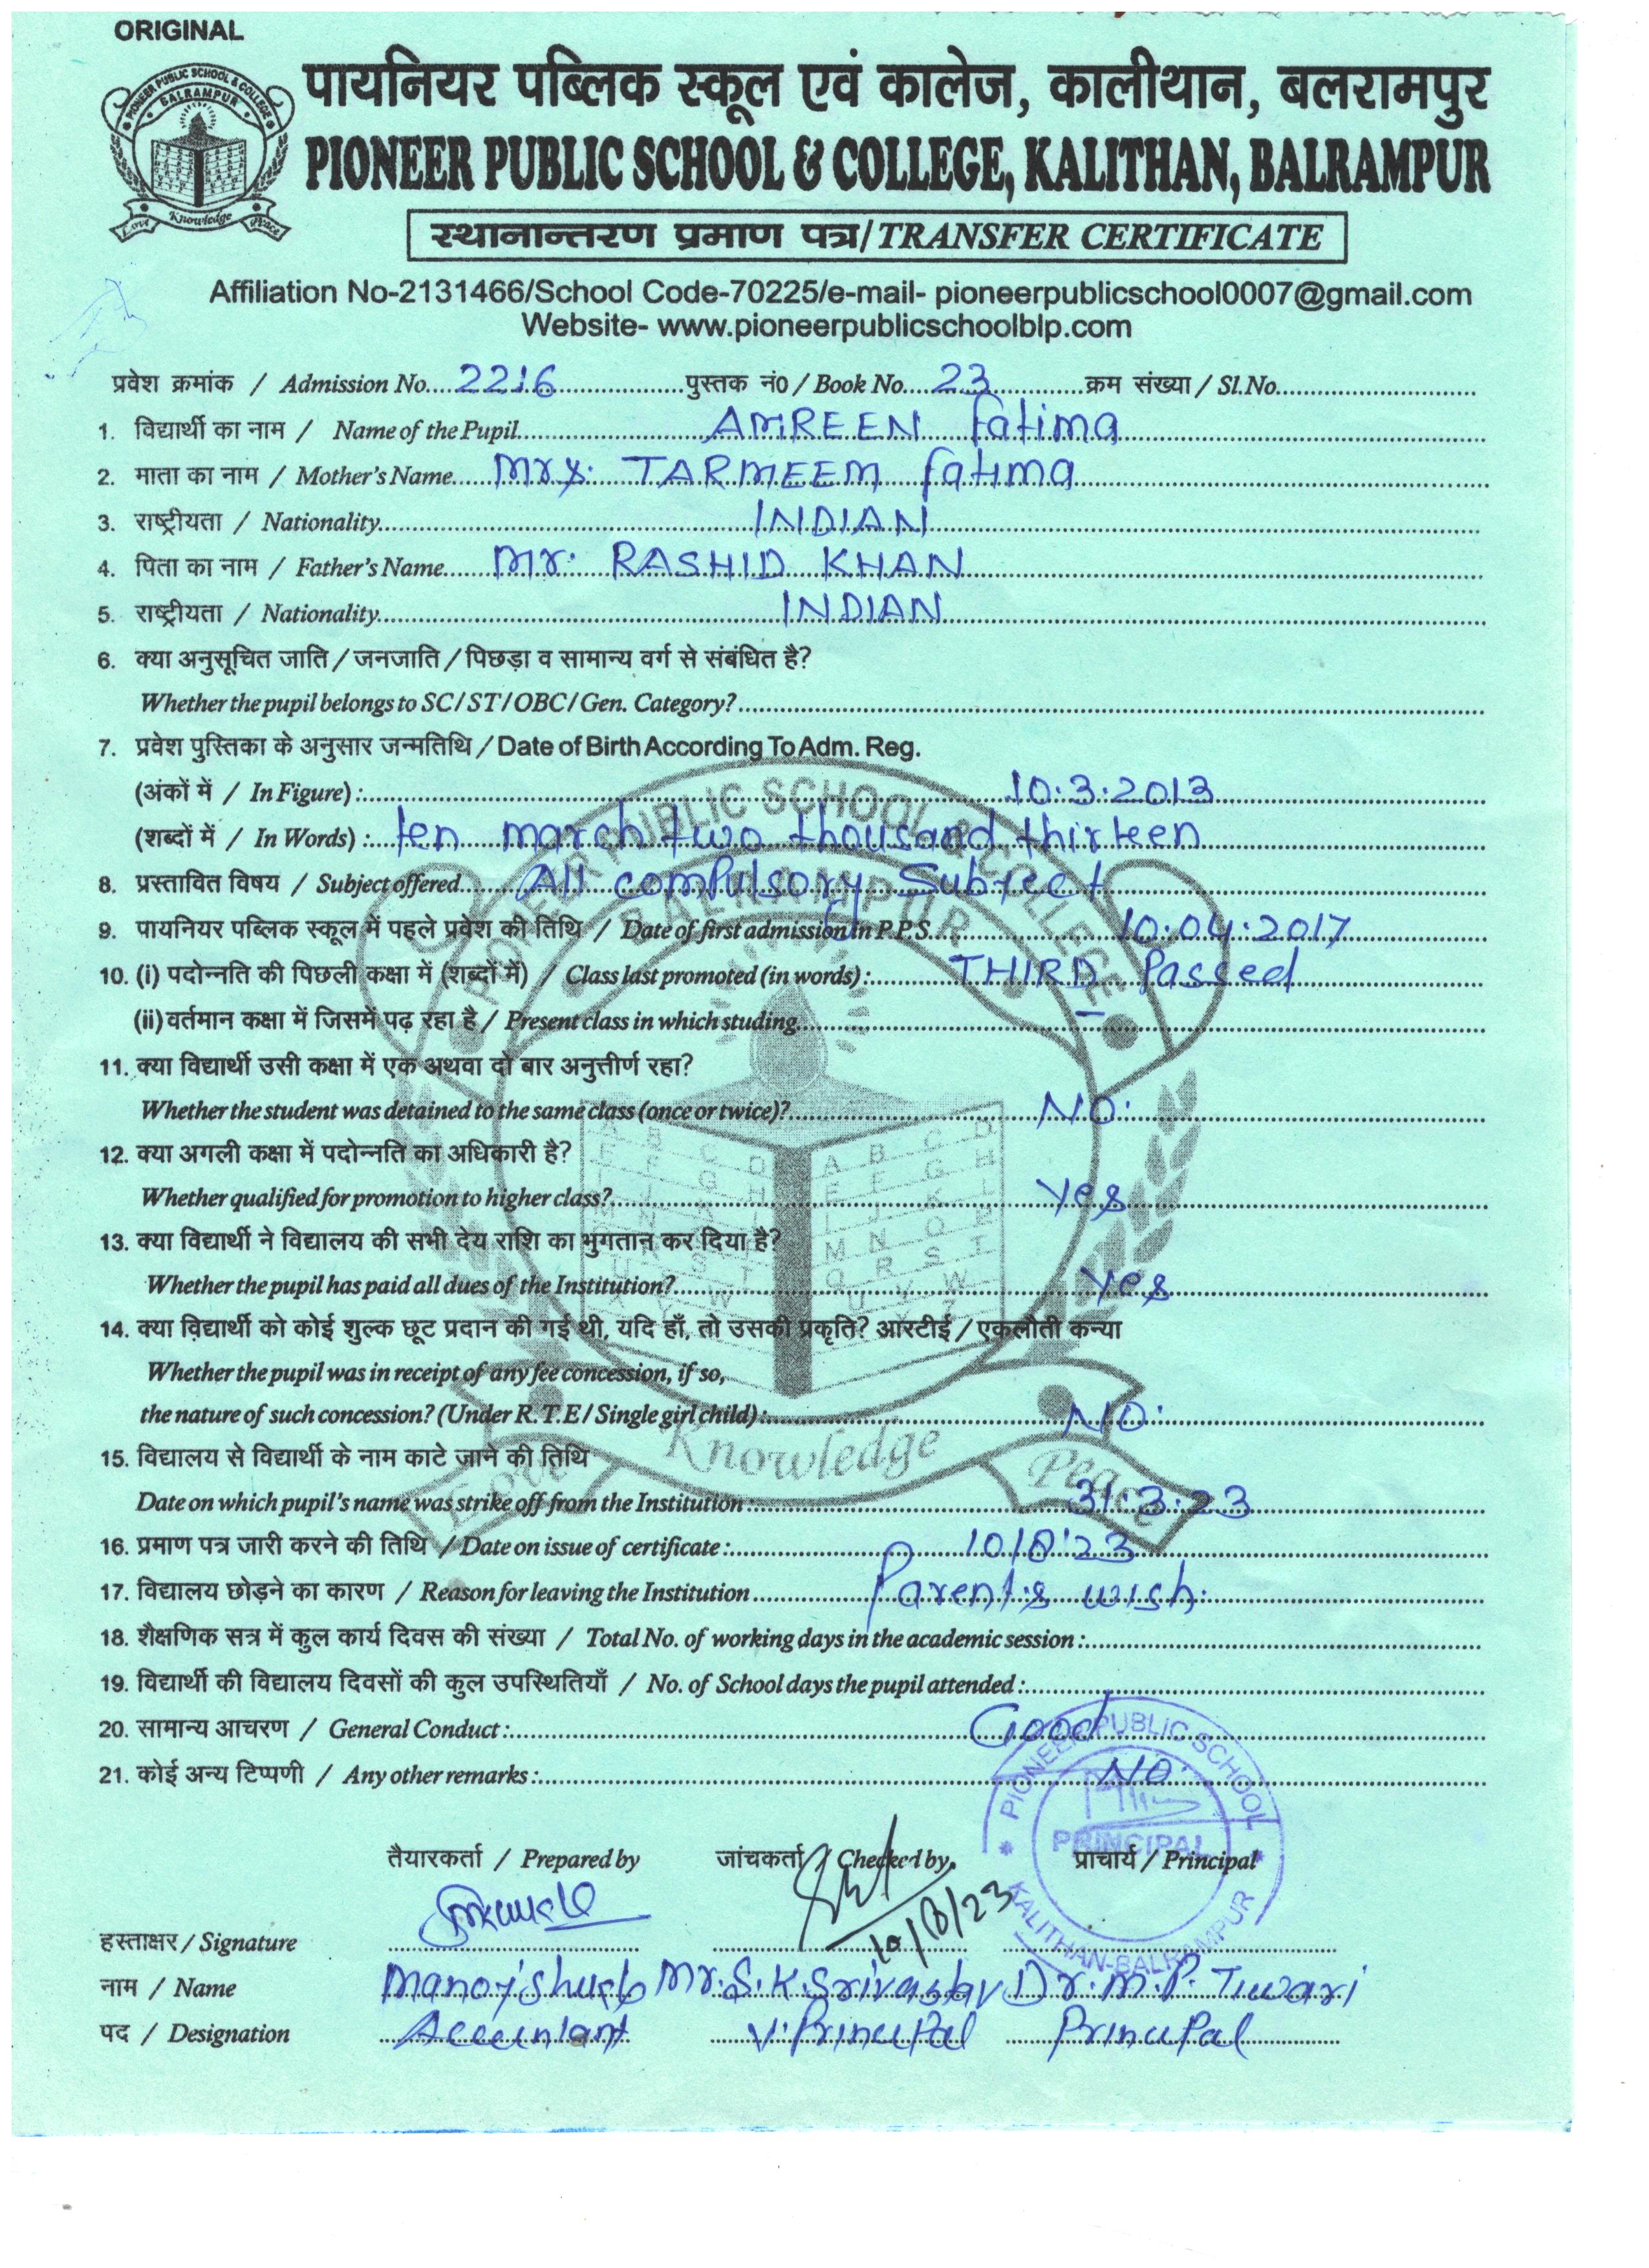 ORIGINAL
पायनियर पब्लिक स्कूल एवं कालेज, कालीथान, बलरामपुर
PIONEER PUBLIC SCHOOL & COLLEGE, KALITHAN, BALRAMPUR
PIONEER PUBLIC SCHOOL & COLLEGE
BALRAMPUR
Love Knowledge Peace
स्थानान्तरण प्रमाण पत्र/TRANSFER CERTIFICATE
Affiliation No-2131466/School Code-70225/e-mail- pioneerpublicschool0007@gmail.com
Website- www.pioneerpublicschoolblp.com
प्रवेश क्रमांक / Admission No. 2216 पुस्तक नं0 / Book No. 23 क्रम संख्या / Sl.No.
1. विद्यार्थी का नाम / Name of the Pupil AMREEN Fatima
2. माता का नाम / Mother's Name Mrs. TARMEEM Fatima
3. राष्ट्रीयता / Nationality INDIAN
4. पिता का नाम / Father's Name Mr. RASHID KHAN
5. राष्ट्रीयता / Nationality INDIAN
6. क्या अनुसूचित जाति / जनजाति / पिछड़ा व सामान्य वर्ग से संबंधित है?
Whether the pupil belongs to SC/ ST/ OBC/ Gen. Category?
7. प्रवेश पुस्तिका के अनुसार जन्मतिथि / Date of Birth According To Adm. Reg.
(अंकों में / In Figure) : 10.3.2013
(शब्दों में / In Words) : ten march two thousand thirteen
8. प्रस्तावित विषय / Subject offered All compulsory Subject
9. पायनियर पब्लिक स्कूल में पहले प्रवेश की तिथि / Date of first admission in P.P.S. 10.04.2017
10. (i) पदोन्नति की पिछली कक्षा में (शब्दों में) / Class last promoted (in words) : THIRD Passed
(ii) वर्तमान कक्षा में जिसमें पढ़ रहा है / Present class in which studing
11. क्या विद्यार्थी उसी कक्षा में एक अथवा दो बार अनुत्तीर्ण रहा?
Whether the student was detained to the same class (once or twice)? NO.
12. क्या अगली कक्षा में पदोन्नति का अधिकारी है?
Whether qualified for promotion to higher class? Yes
13. क्या विद्यार्थी ने विद्यालय की सभी देय राशि का भुगतान कर दिया है?
Whether the pupil has paid all dues of the Institution? Yes
14. क्या विद्यार्थी को कोई शुल्क छूट प्रदान की गई थी, यदि हाँ, तो उसकी प्रकृति? आरटीई / एकलौती कन्या
Whether the pupil was in receipt of any fee concession, if so,
the nature of such concession? (Under R.T.E/ Single girl child) : NO.
15. विद्यालय से विद्यार्थी के नाम काटे जाने की तिथि
Date on which pupil's name was strike off from the Institution : 31.3.23
16. प्रमाण पत्र जारी करने की तिथि / Date on issue of certificate :
17. विद्यालय छोड़ने का कारण / Reason for leaving the Institution Parent's wish.
18. शैक्षणिक सत्र में कुल कार्य दिवस की संख्या / Total No. of working days in the academic session :
19. विद्यार्थी की विद्यालय दिवसों की कुल उपस्थितियाँ / No. of School days the pupil attended :
20. सामान्य आचरण / General Conduct : Good
21. कोई अन्य टिप्पणी / Any other remarks : NO
PIONEER PUBLIC SCHOOL
PRINCIPAL
KALITHAN-BALRAMPUR
तैयारकर्ता / Prepared by जांचकर्ता / Checked by प्राचार्य / Principal
हस्ताक्षर / Signature
नाम / Name Manoj Mr. S.K. Srivastav Dr. M.P. Tiwari
पद / Designation Accountant V. Principal Principal